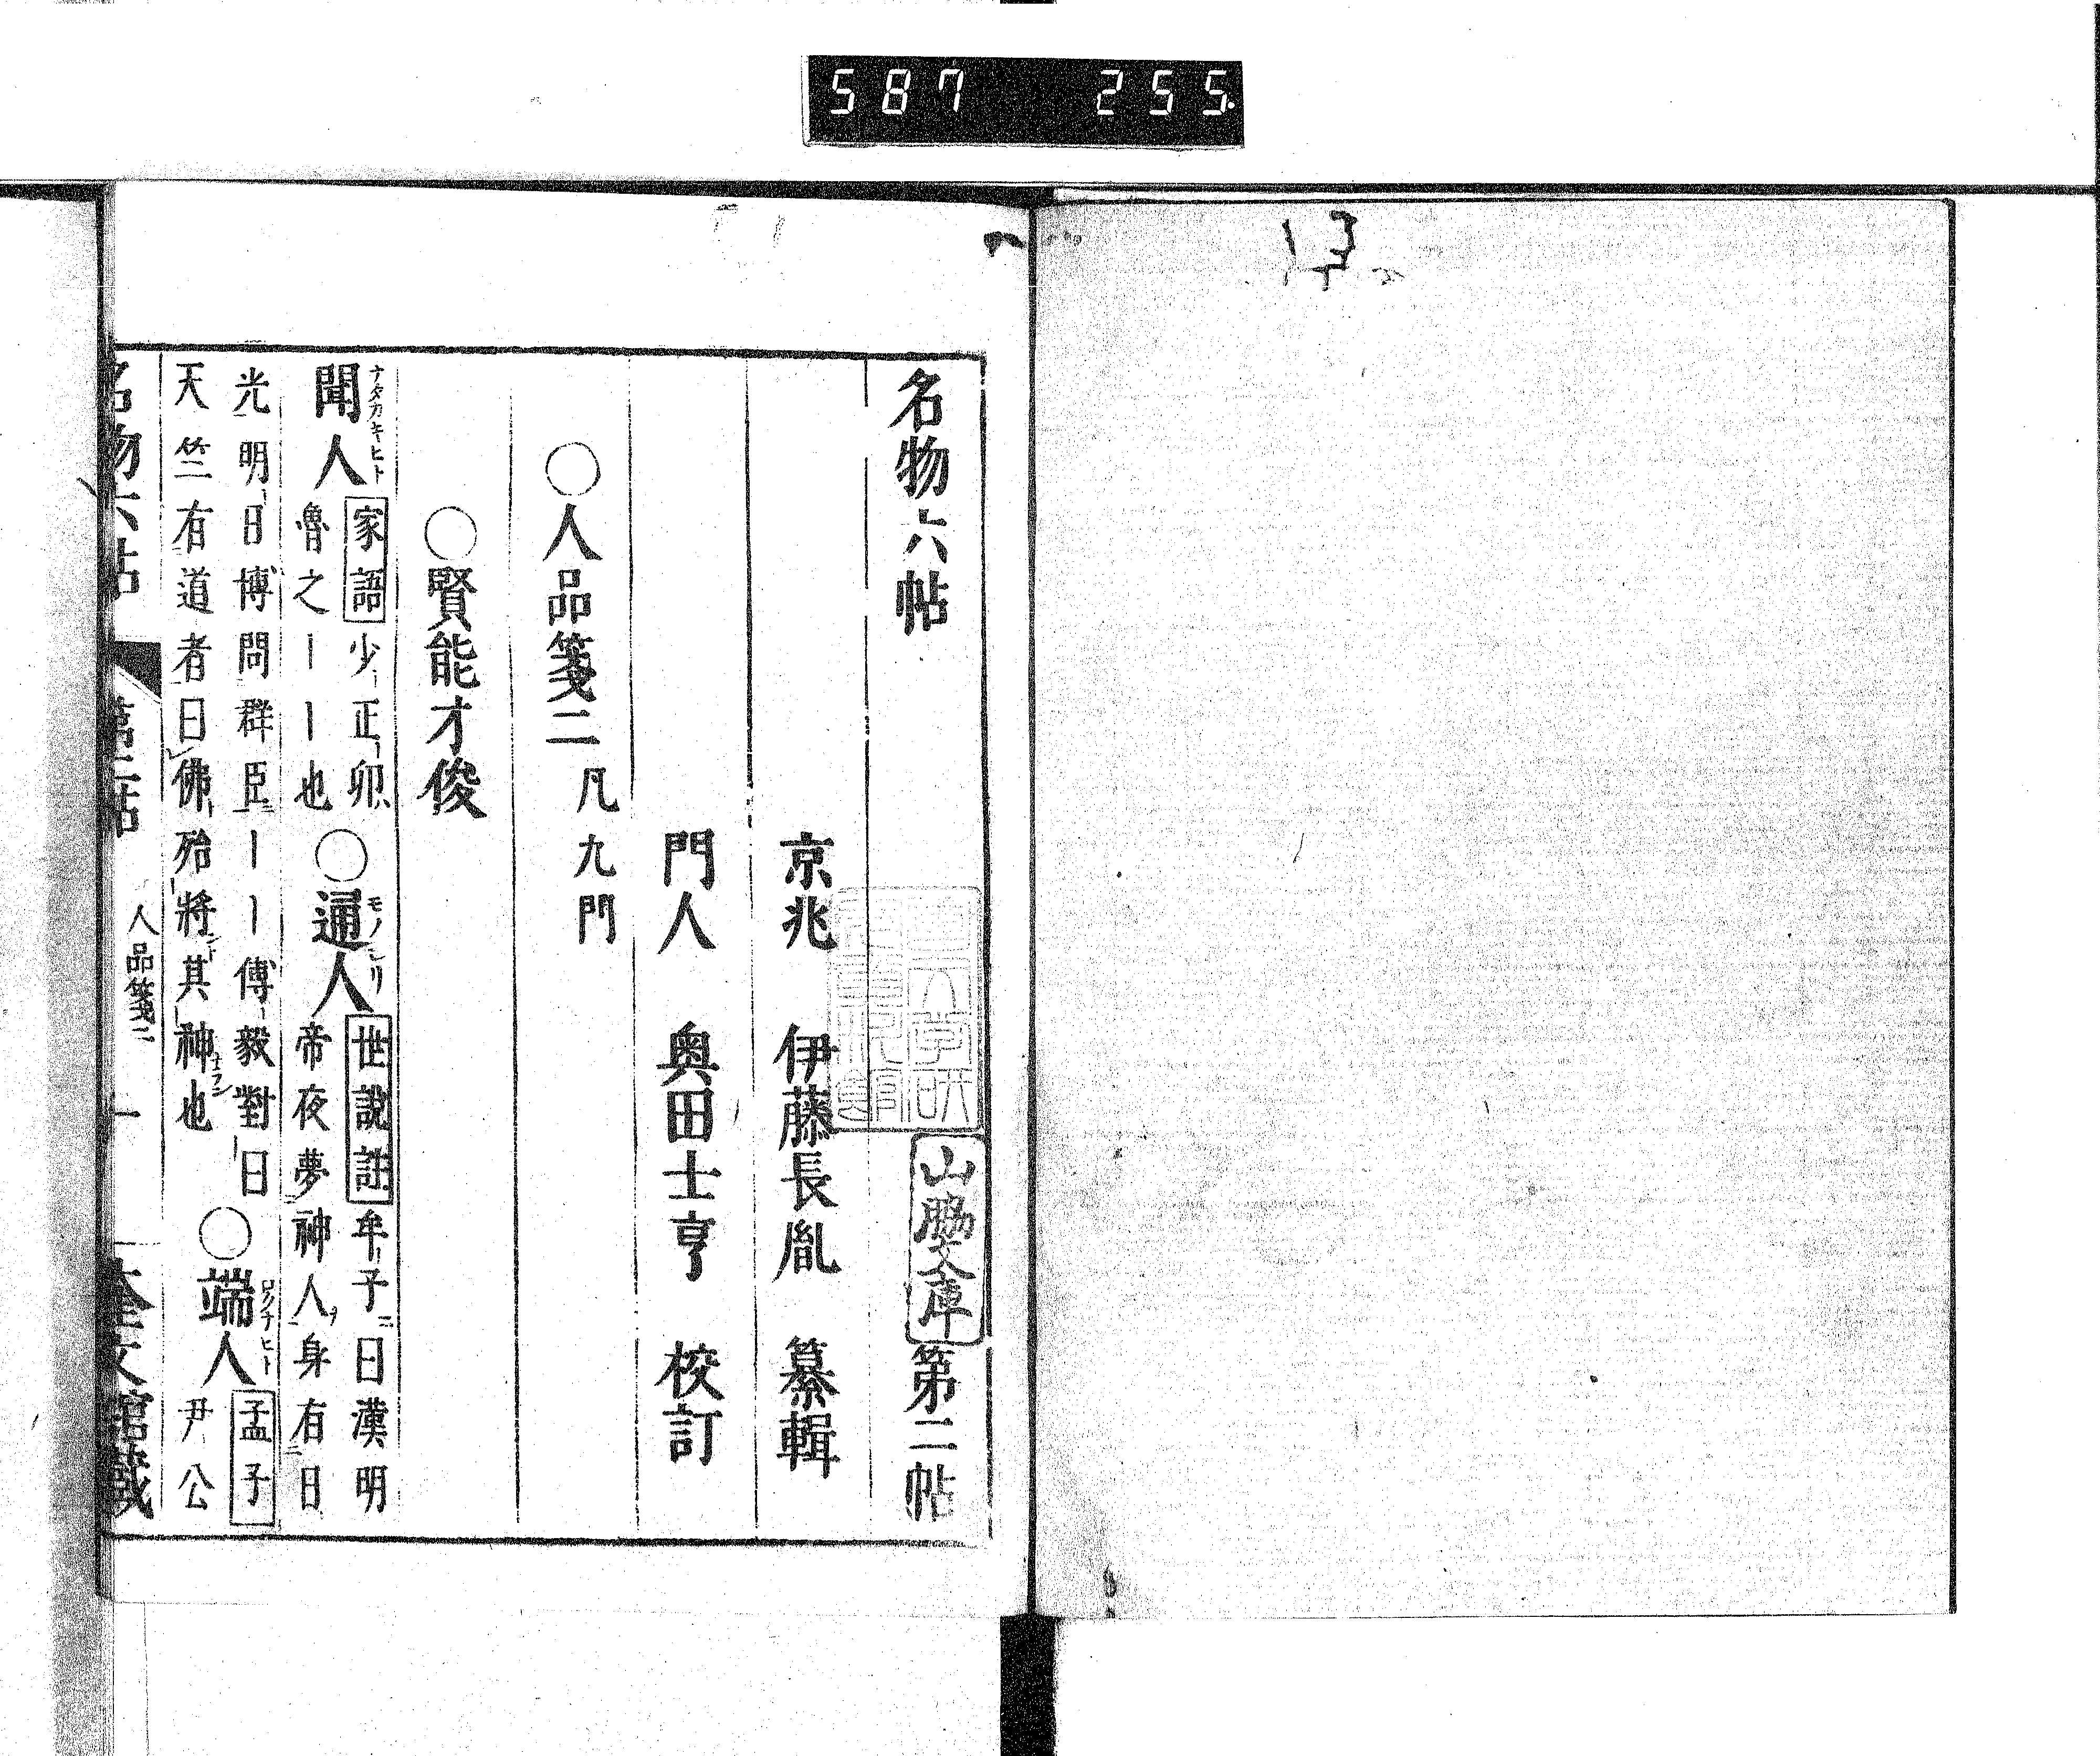 587 255
名物六帖 第二帖
山脇文庫
京兆 伊藤長胤 纂輯
門人 奥田士亨 校訂
〇人品箋二 凡九門
〇賢能才俊
聞人 ナタカキヒト
家語 少正卯
魯之||也
〇通人 モノシリ
世說註 牟子曰漢明
帝夜夢神人身有日
光明日博問群臣||傅毅對曰
天竺有道者曰佛殆將其神也
〇端人 ロクナヒト
孟子
尹公
名物六帖 第二帖 人品箋二 一 奎文館藏